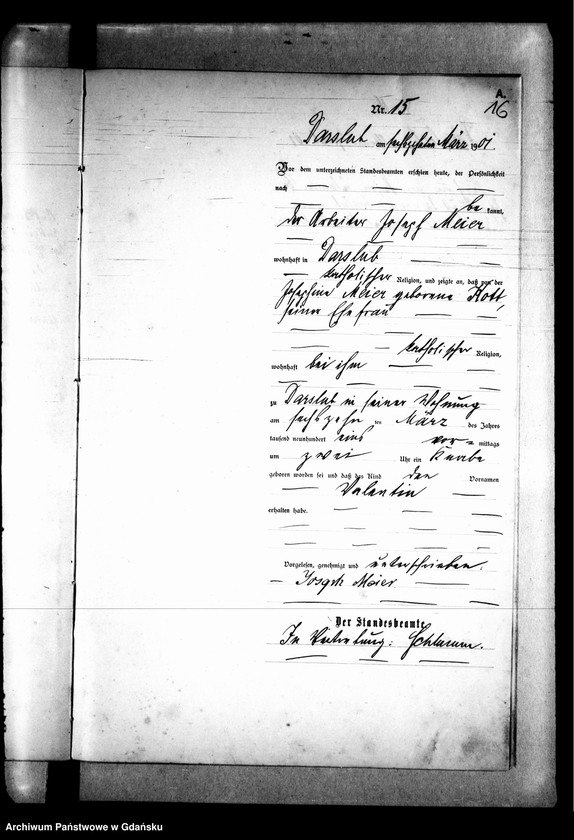 A.
16
Nr. 15
Darslub am sechszehnten März 1901.
Vor dem unterzeichneten Standesbeamten erschien heute, der Persönlichkeit
nach
be kannt,
der Arbeiter Joseph Meier
wohnhaft in Darslub
katholischer Religion, und zeigte an, daß von der
Josephine Meier geborene Kott,
seiner Ehefrau
katholischer Religion,
wohnhaft bei ihm
zu Darslub in seiner Wohnung
am sechszehn ten März des Jahres
tausend neunhundert eins vor= mittags
um zwei Uhr ein Knabe
geboren worden sei und daß das Kind den Vornamen
Valentin
erhalten habe.
Vorgelesen, genehmigt und unterschrieben.
Joseph Meier
Der Standesbeamte
In Vertretung:
Archiwum Państwowe w Gdańsku